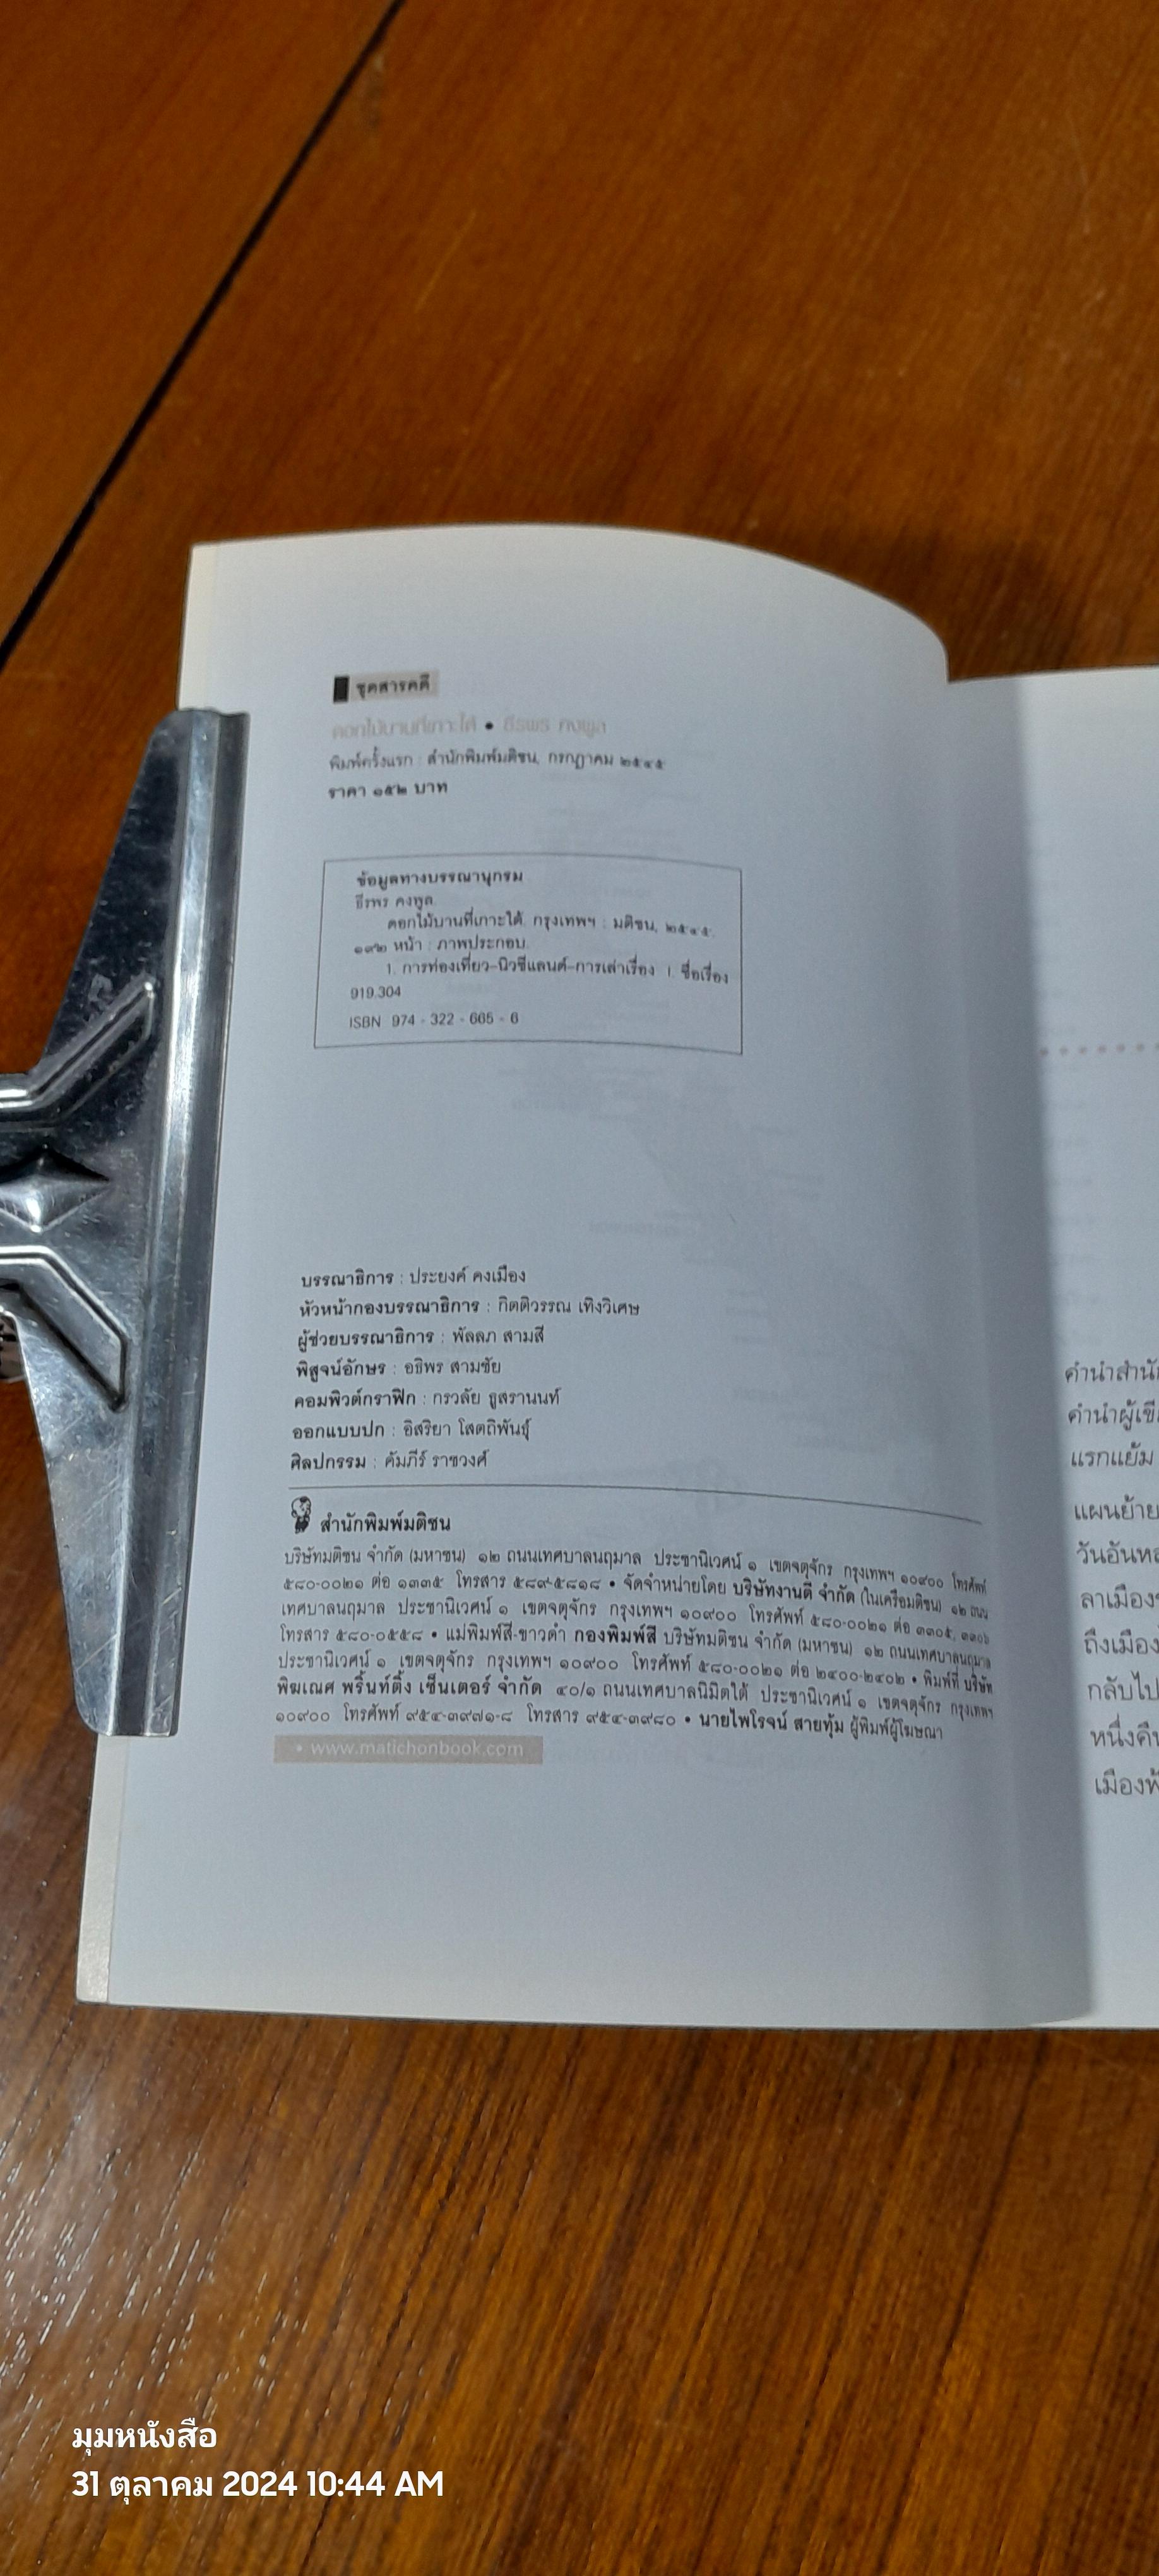 ชุดสารคดี
ดอกไม้บานที่เกาะใต้ • ธีรพร คงพูล
พิมพ์ครั้งแรก : สำนักพิมพ์มติชน, กรกฎาคม ๒๕๔๕
ราคา ๑๕๒ บาท
ข้อมูลทางบรรณานุกรม
ธีรพร คงพูล.
ดอกไม้บานที่เกาะใต้. กรุงเทพฯ : มติชน, ๒๕๔๕.
๑๙๒ หน้า : ภาพประกอบ.
1. การท่องเที่ยว-นิวซีแลนด์-การเล่าเรื่อง I. ชื่อเรื่อง
919.304
ISBN 974 - 322 - 665 - 6
บรรณาธิการ : ประยงค์ คงเมือง
หัวหน้ากองบรรณาธิการ : กิตติวรรณ เทิงวิเศษ
ผู้ช่วยบรรณาธิการ : พัลลภ สามสี
พิสูจน์อักษร : อธิพร สามชัย
คอมพิวต์กราฟิก : กรวลัย ธูสรานนท์
ออกแบบปก : อิสริยา โสตถิพันธุ์
ศิลปกรรม : คัมภีร์ ราชวงศ์
สำนักพิมพ์มติชน
บริษัทมติชน จำกัด (มหาชน) ๑๒ ถนนเทศบาลนฤมาล ประชานิเวศน์ ๑ เขตจตุจักร กรุงเทพฯ ๑๐๙๐๐ โทรศัพท์
๕๘๐-๐๐๒๑ ต่อ ๑๓๓๕ โทรสาร ๕๘๙-๕๘๑๘ • จัดจำหน่ายโดย บริษัทงานดี จำกัด (ในเครือมติชน) ๑๒ ถนน
เทศบาลนฤมาล ประชานิเวศน์ ๑ เขตจตุจักร กรุงเทพฯ ๑๐๙๐๐ โทรศัพท์ ๕๘๐-๐๐๒๑ ต่อ ๓๓๐๕, ๓๓๐๖
โทรสาร ๕๘๐-๐๕๕๘ • แม่พิมพ์สี-ขาวดำ กองพิมพ์สี บริษัทมติชน จำกัด (มหาชน) ๑๒ ถนนเทศบาลนฤมาล
ประชานิเวศน์ ๑ เขตจตุจักร กรุงเทพฯ ๑๐๙๐๐ โทรศัพท์ ๕๘๐-๐๐๒๑ ต่อ ๒๔๐๐-๒๔๐๒ • พิมพ์ที่ บริษัท
พิฆเณศ พริ้นท์ติ้ง เซ็นเตอร์ จำกัด ๔๐/๑ ถนนเทศบาลนิมิตใต้ ประชานิเวศน์ ๑ เขตจตุจักร กรุงเทพฯ
๑๐๙๐๐ โทรศัพท์ ๙๕๔-๓๙๗๑-๘ โทรสาร ๙๕๔-๓๙๘๐ • นายไพโรจน์ สายทุ้ม ผู้พิมพ์ผู้โฆษณา
• www.matichonbook.com
คำนำสำนั
คำนำผู้เขี
แรกแย้ม
แผนย้าย
วันอันหล
ลาเมือง
ถึงเมือง
กลับไป
หนึ่งคืน
เมืองพั
มุมหนังสือ
31 ตุลาคม 2024 10:44 AM